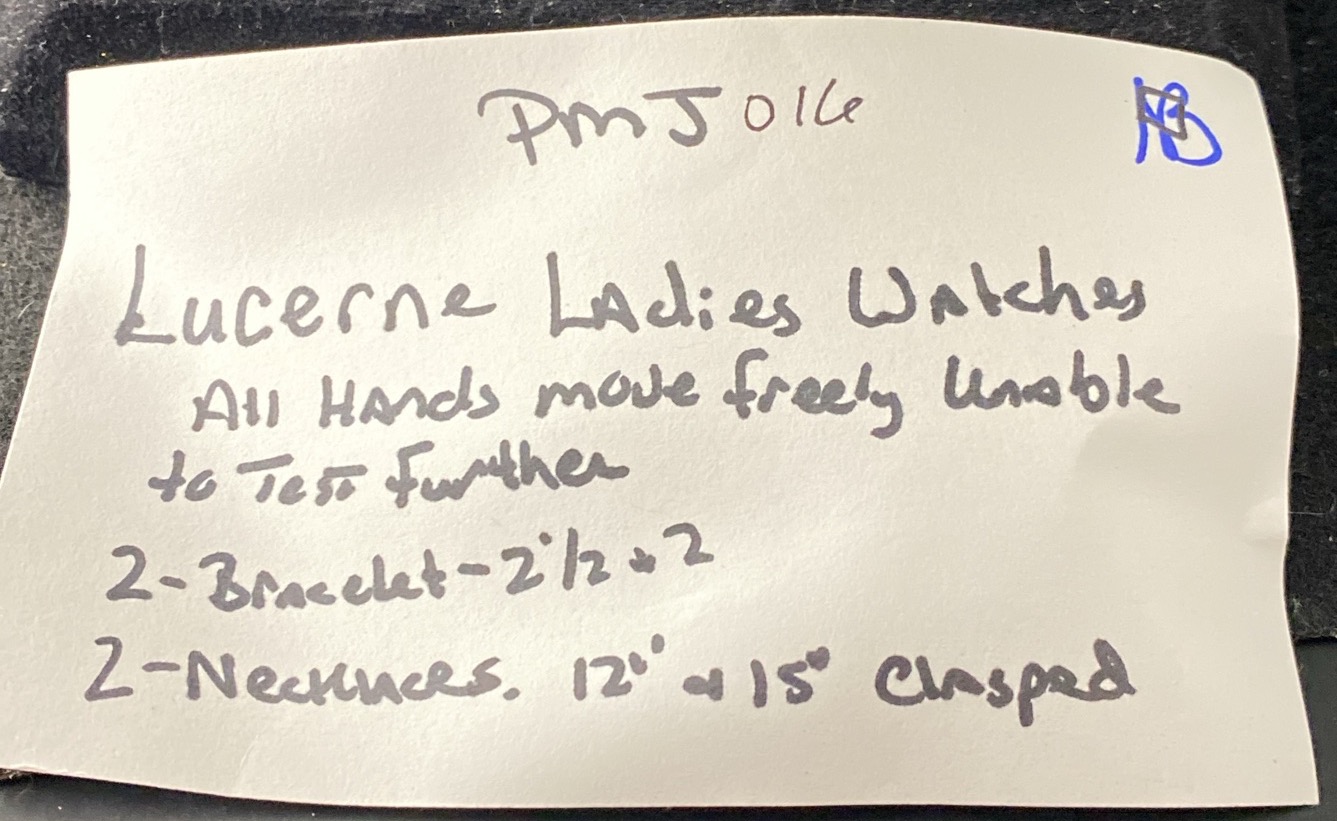 PMJ 016
Lucerne Ladies Watches
All Hands move freely Unable
to Test further
2-Bracelet-2 1/2 + 2
2-Neckluces. 12" + 15" Clasped